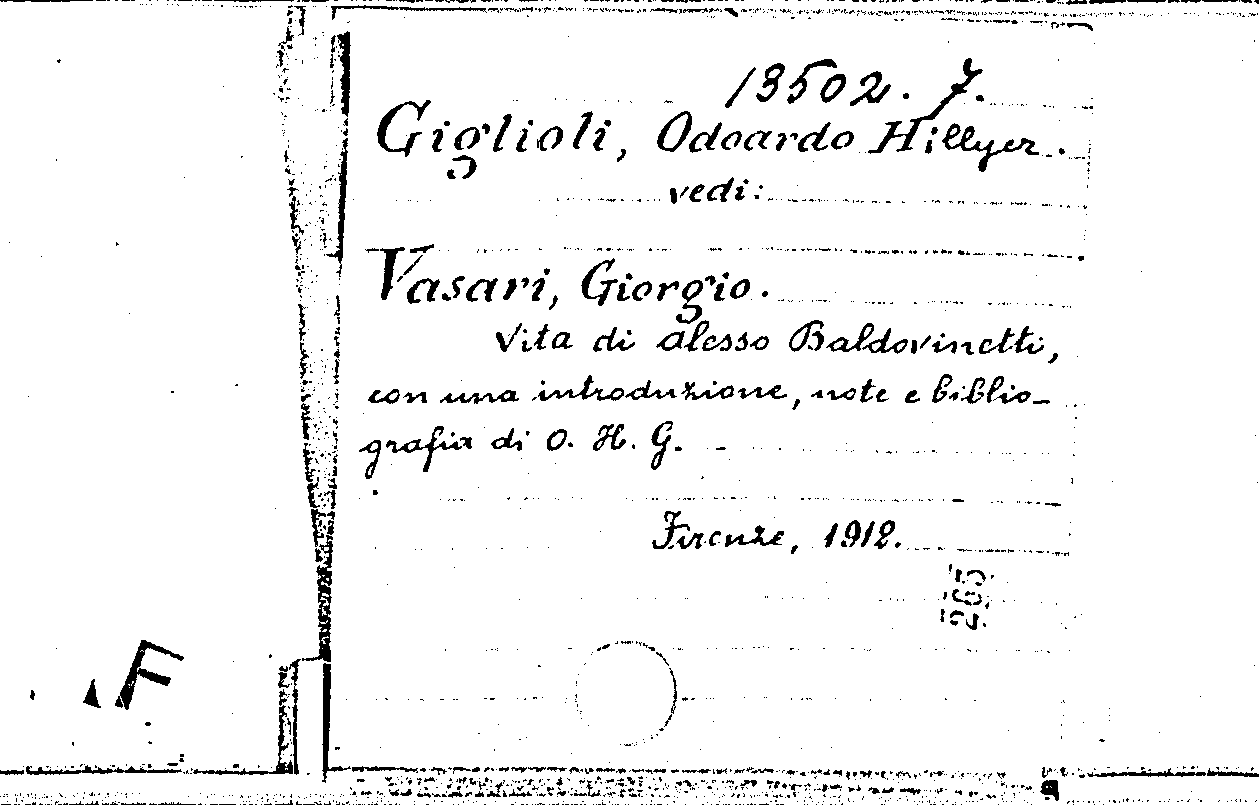 13502. 7.
Giglioli, Odoardo Hillyer.
vedi:
Vasari, Giorgio.
Vita di Alesso Baldovinetti,
con una introduzione, note e biblio-
grafia di O. H. G.
Firenze, 1912.
265
F